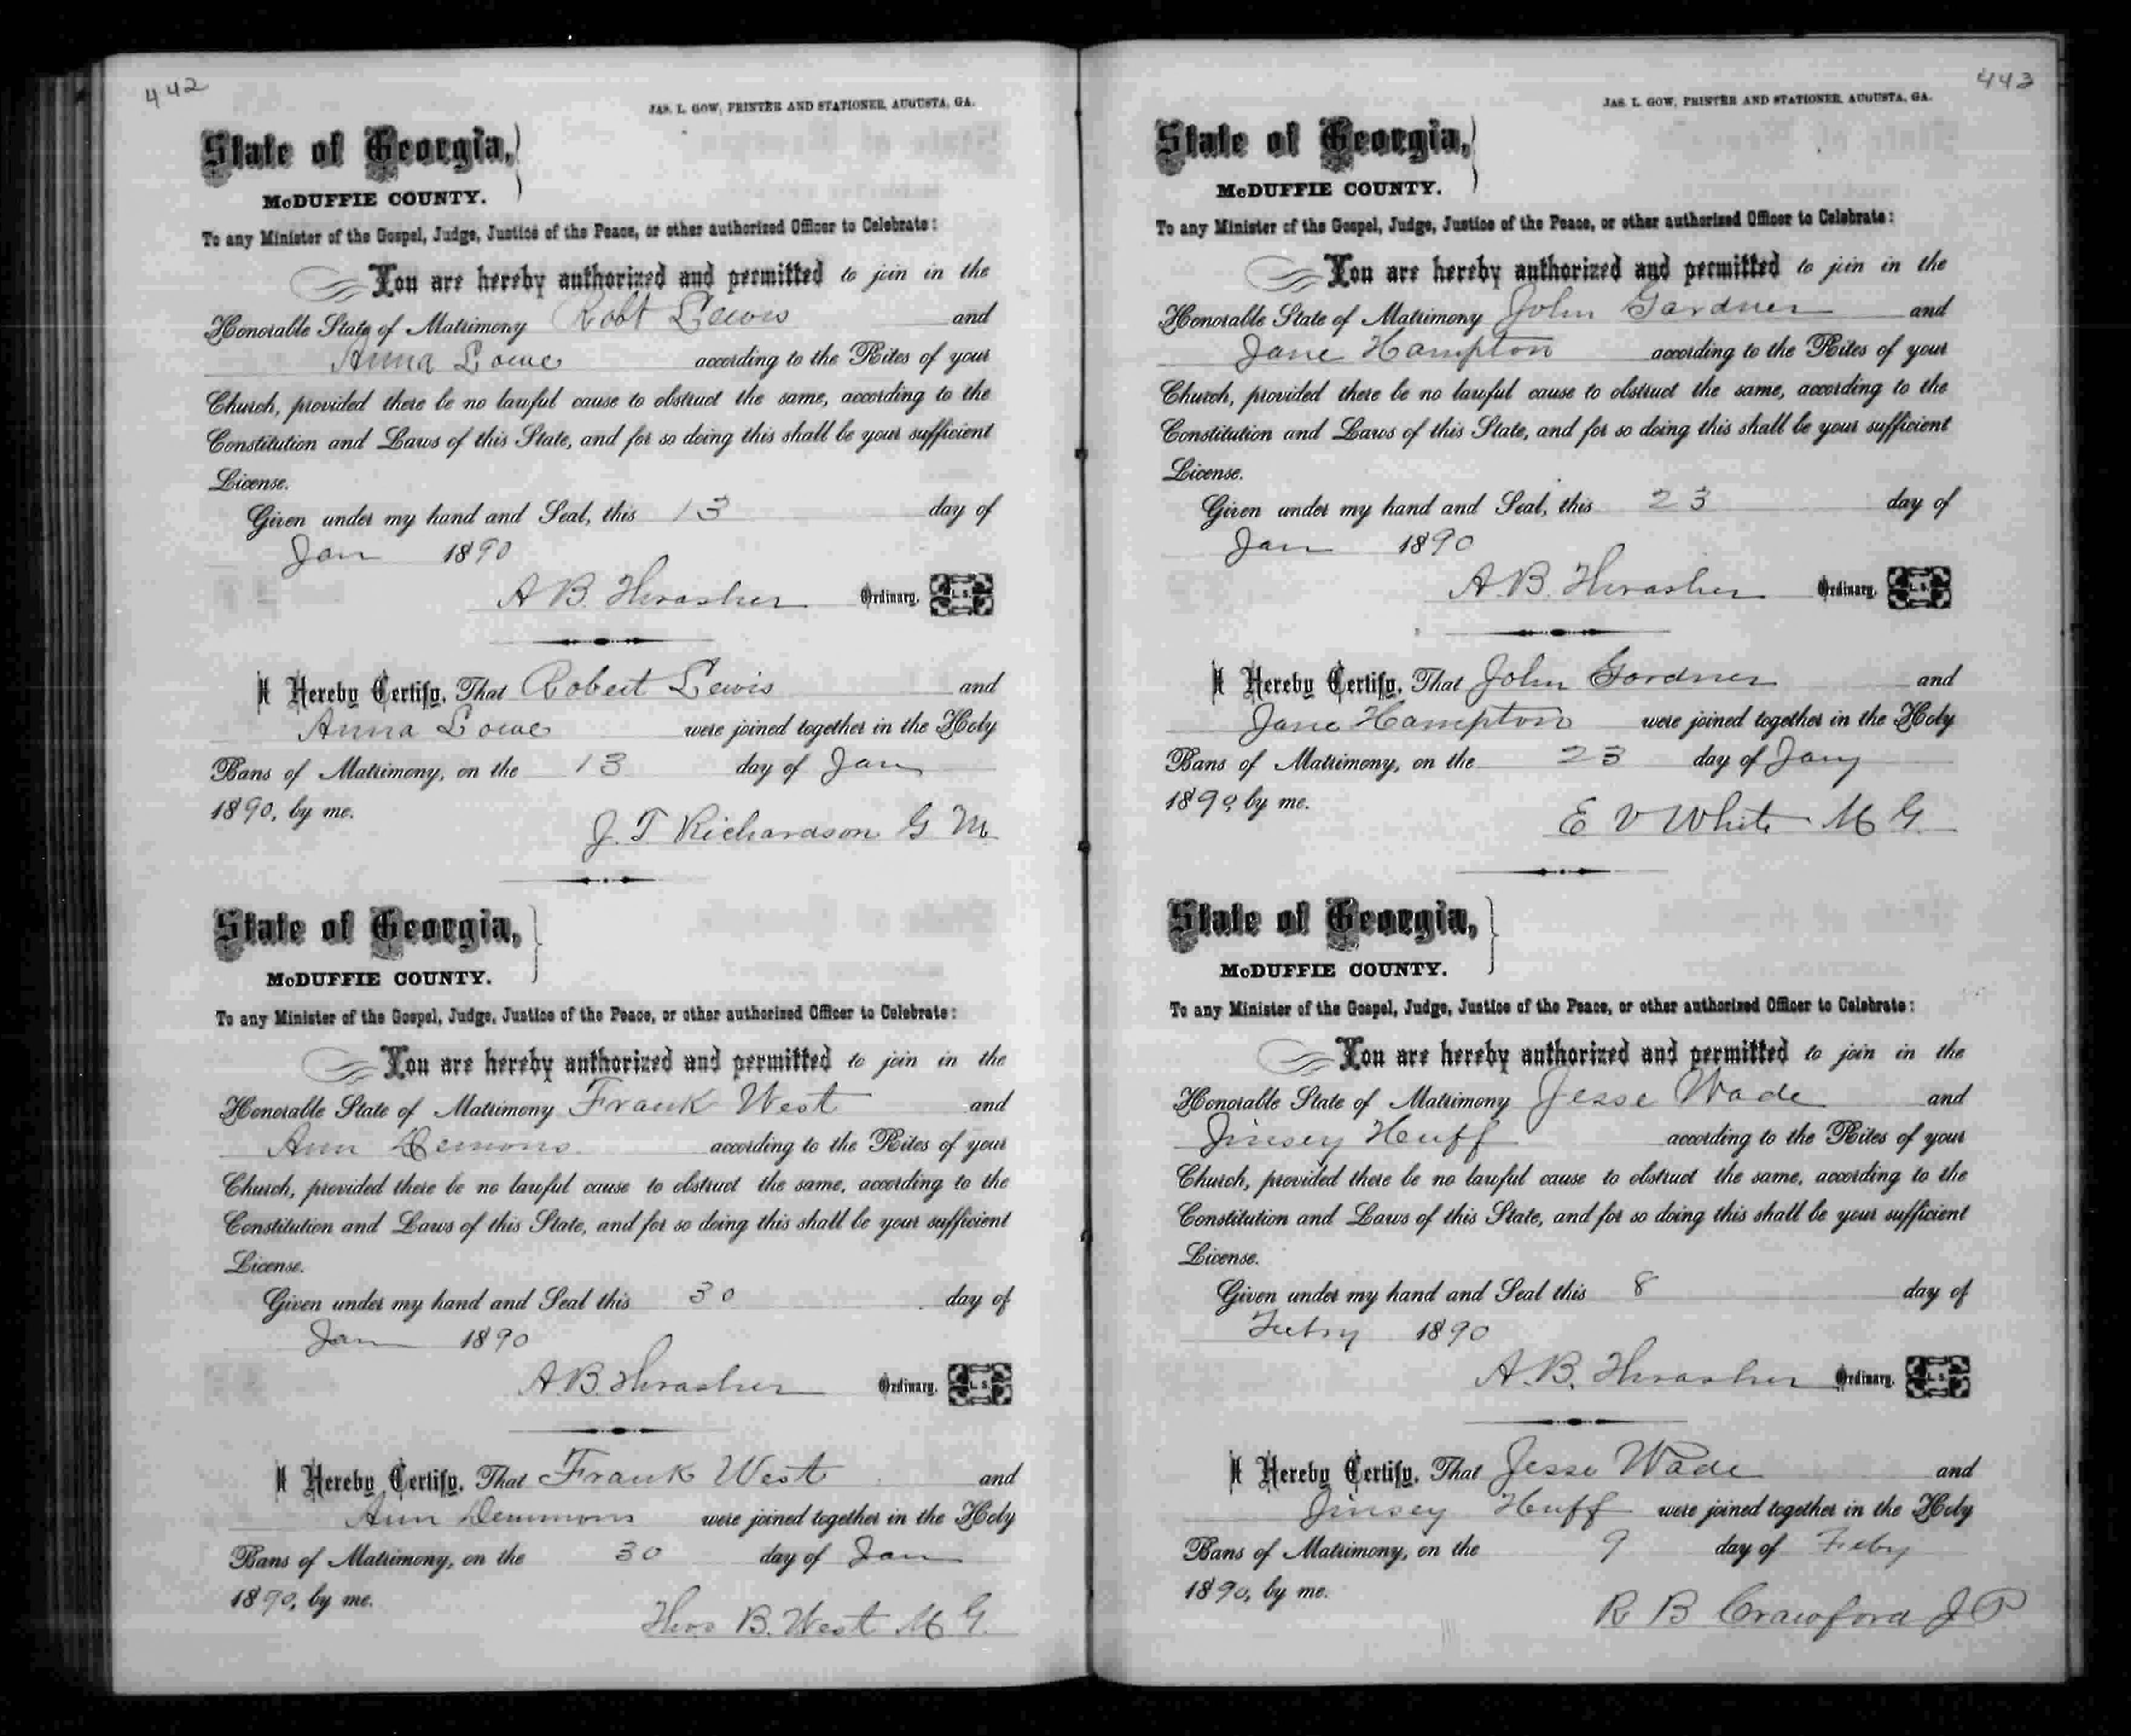 442
JAS. L. GOW, PRINTER AND STATIONER, AUGUSTA, GA.
State of Georgia,
McDUFFIE COUNTY.
To any Minister of the Gospel, Judge, Justice of the Peace, or other authorized Officer to Celebrate:
You are hereby authorized and permitted to join in the
Honorable State of Matrimony Robt Lewis and
Anna Lowe according to the Rites of your
Church, provided there be no lawful cause to obstruct the same, according to the
Constitution and Laws of this State, and for so doing this shall be your sufficient
License.
Given under my hand and Seal, this 13 day of
Jan 1890
A B. Thrasher Ordinary. L. S.
I Hereby Certify, That Robert Lewis and
Anna Lowe were joined together in the Holy
Bans of Matrimony, on the 13 day of Jan
1890, by me.
J. T. Richardson G M
State of Georgia,
McDUFFIE COUNTY.
To any Minister of the Gospel, Judge, Justice of the Peace, or other authorized Officer to Celebrate:
You are hereby authorized and permitted to join in the
Honorable State of Matrimony Frank West and
Ann Demons according to the Rites of your
Church, provided there be no lawful cause to obstruct the same, according to the
Constitution and Laws of this State, and for so doing this shall be your sufficient
License.
Given under my hand and Seal this 30 day of
Jan 1890
A B. Thrasher Ordinary. L. S.
I Hereby Certify, That Frank West and
Ann Demmons were joined together in the Holy
Bans of Matrimony, on the 30 day of Jan
1890, by me.
Thos B. West M G.
443
JAS. L. GOW, PRINTER AND STATIONER, AUGUSTA, GA.
State of Georgia,
McDUFFIE COUNTY.
To any Minister of the Gospel, Judge, Justice of the Peace, or other authorized Officer to Celebrate:
You are hereby authorized and permitted to join in the
Honorable State of Matrimony John Gardner and
Jane Hampton according to the Rites of your
Church, provided there be no lawful cause to obstruct the same, according to the
Constitution and Laws of this State, and for so doing this shall be your sufficient
License.
Given under my hand and Seal, this 23 day of
Jan 1890
A. B. Thrasher Ordinary. L. S.
I Hereby Certify, That John Gardner and
Jane Hampton were joined together in the Holy
Bans of Matrimony, on the 23 day of Jany
1890, by me.
E V White M G.
State of Georgia,
McDUFFIE COUNTY.
To any Minister of the Gospel, Judge, Justice of the Peace, or other authorized Officer to Celebrate:
You are hereby authorized and permitted to join in the
Honorable State of Matrimony Jesse Wade and
Jinsey Huff according to the Rites of your
Church, provided there be no lawful cause to obstruct the same, according to the
Constitution and Laws of this State, and for so doing this shall be your sufficient
License.
Given under my hand and Seal this 8 day of
Febry 1890
A. B. Thrasher Ordinary. L. S.
I Hereby Certify, That Jesse Wade and
Jinsey Huff were joined together in the Holy
Bans of Matrimony, on the 9 day of Feby
1890, by me.
R B Crawford J P